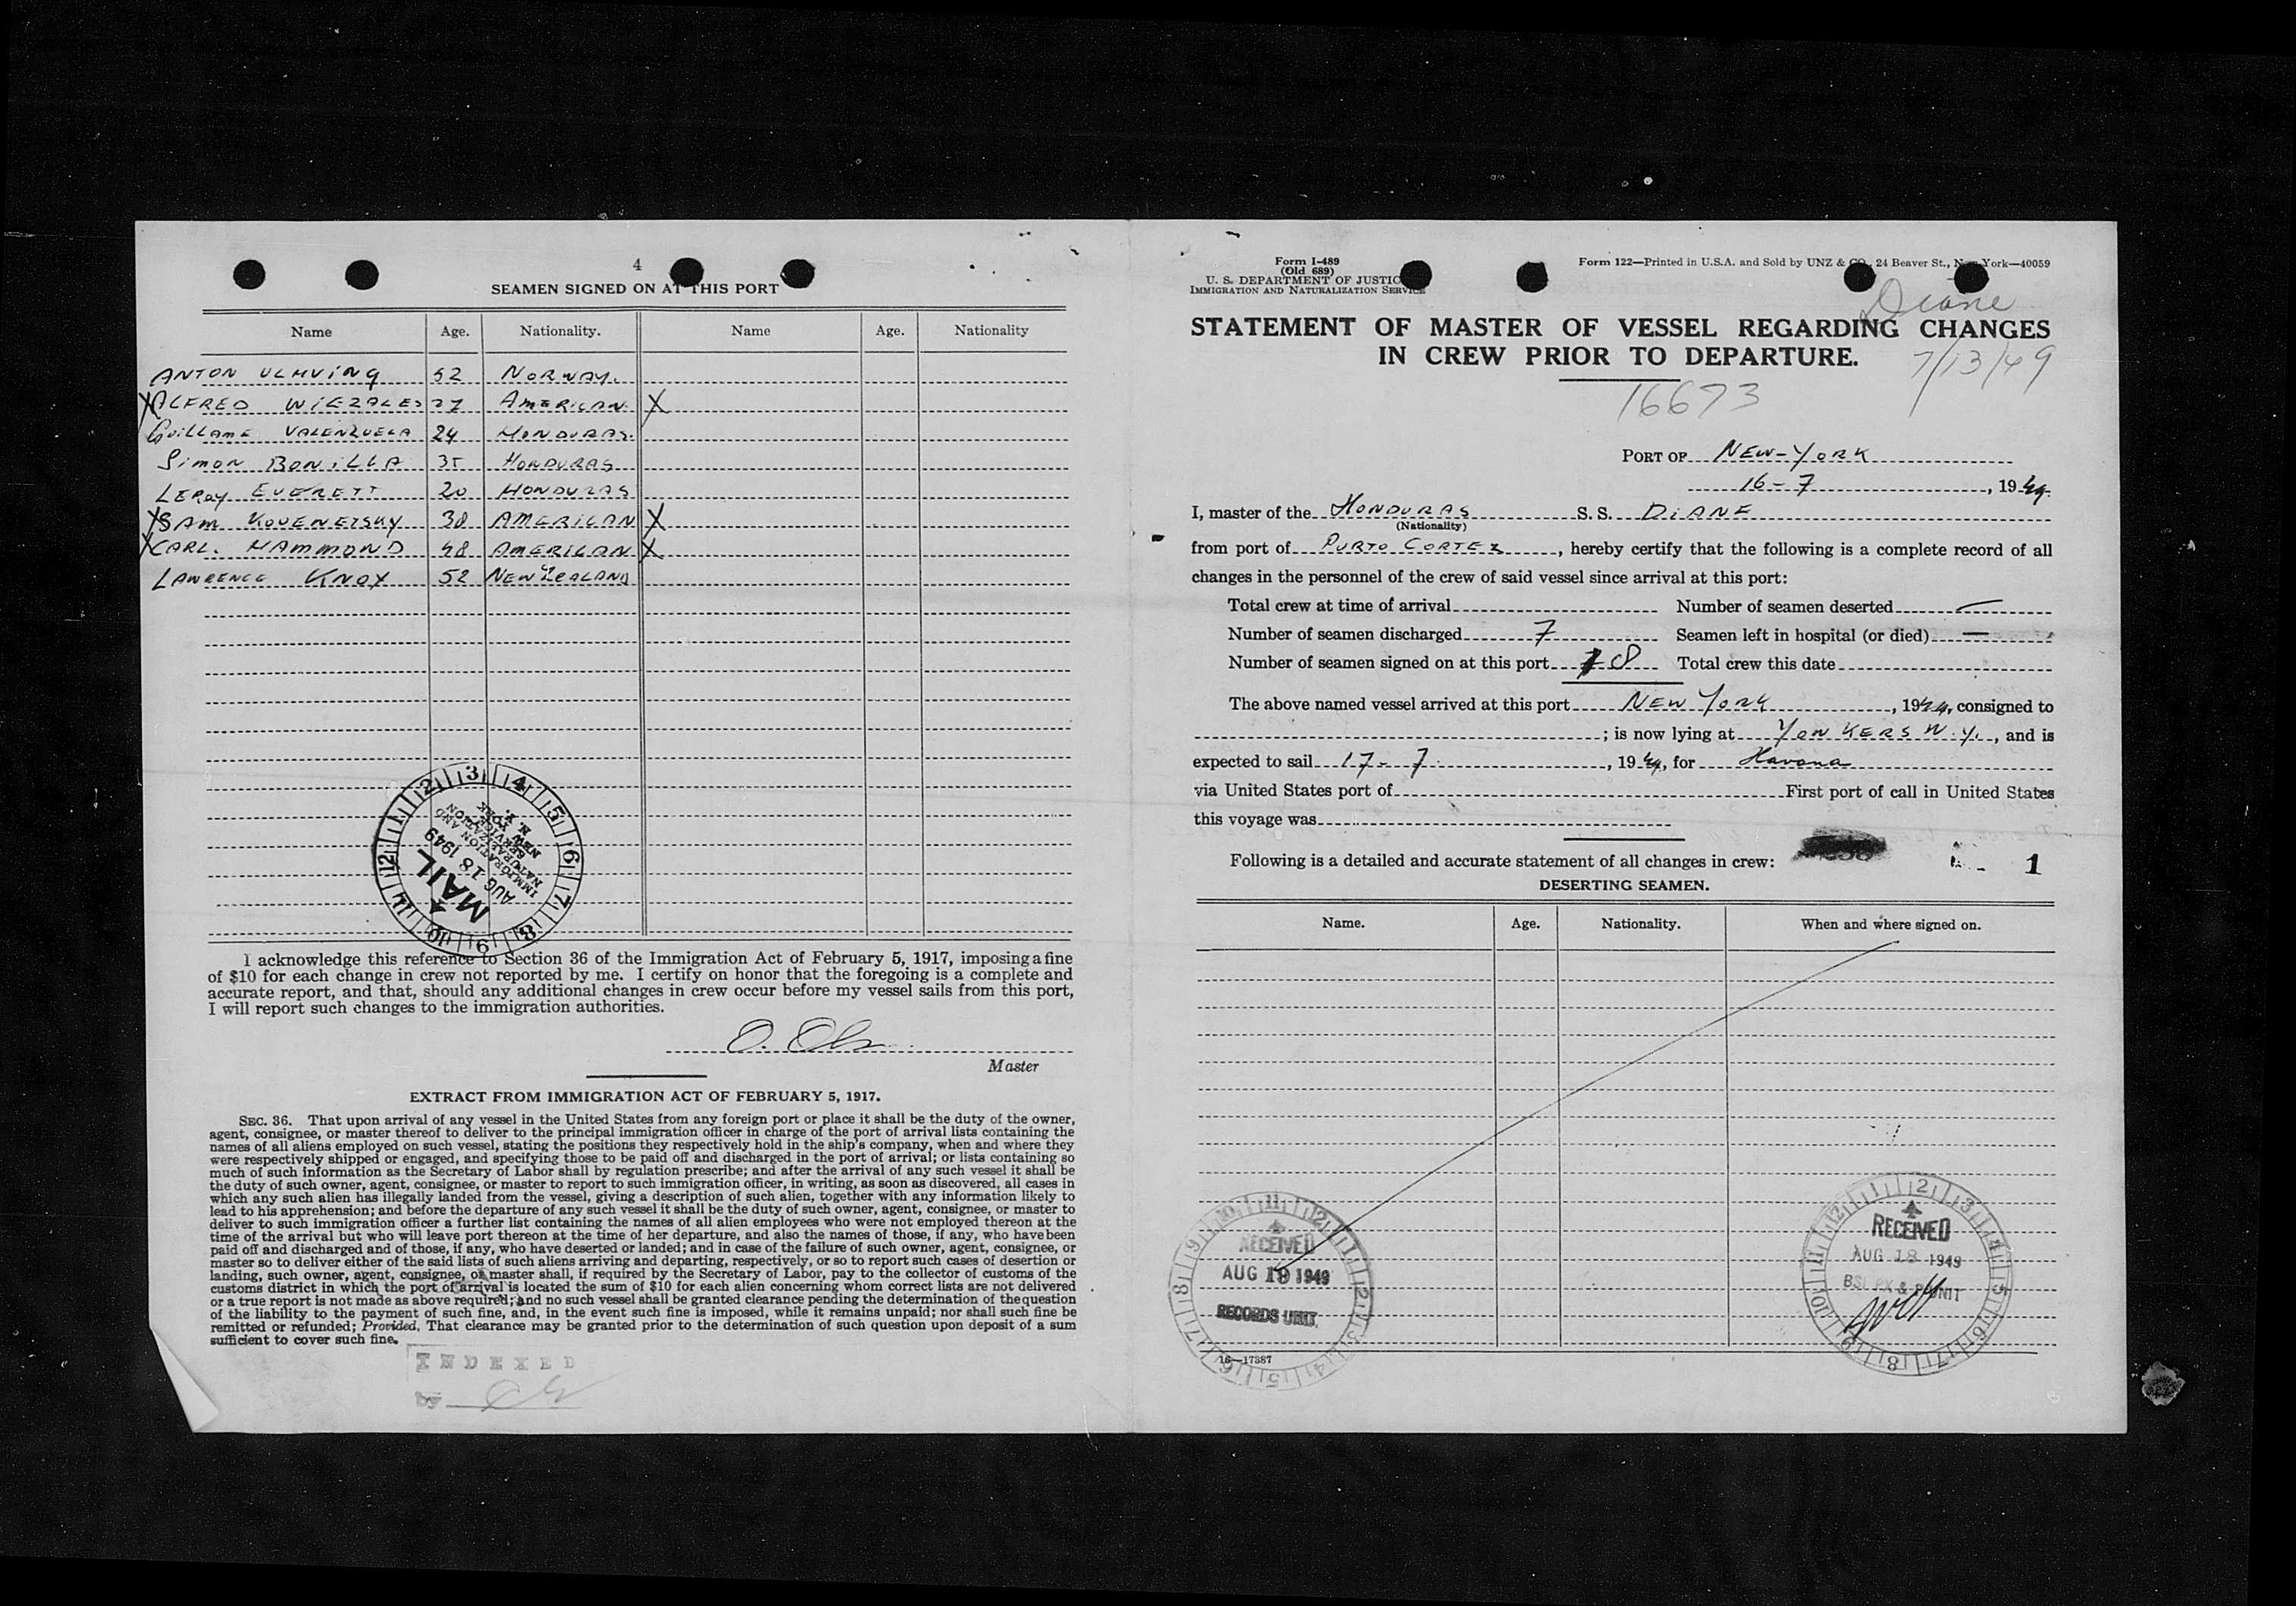 4
SEAMEN SIGNED ON AT THIS PORT
Name Age. Nationality. Name Age. Nationality
ANTON ULHVING 52 NORWAY.
X ALFRED WIEZALES 37 AMERICAN. X
GUILLAME VALENZUELA 24 HONDURAS.
SIMON BONILLA 35 HONDURAS
LEROY EVERETT 20 HONDURAS
X SAM KOVENETSKY 38 AMERICAN X
X CARL. HAMMOND 48 AMERICAN X
LAWRENCE KNOX 52 NEW ZEALAND
MAIL
AUG 18 1949
IMMIGRATION AND
NATURALIZATION
SERVICE
NEW YORK
N. Y.
I acknowledge this reference to Section 36 of the Immigration Act of February 5, 1917, imposing a fine
of $10 for each change in crew not reported by me. I certify on honor that the foregoing is a complete and
accurate report, and that, should any additional changes in crew occur before my vessel sails from this port,
I will report such changes to the immigration authorities.
Master
EXTRACT FROM IMMIGRATION ACT OF FEBRUARY 5, 1917.
SEC. 36. That upon arrival of any vessel in the United States from any foreign port or place it shall be the duty of the owner,
agent, consignee, or master thereof to deliver to the principal immigration officer in charge of the port of arrival lists containing the
names of all aliens employed on such vessel, stating the positions they respectively hold in the ship's company, when and where they
were respectively shipped or engaged, and specifying those to be paid off and discharged in the port of arrival; or lists containing so
much of such information as the Secretary of Labor shall by regulation prescribe; and after the arrival of any such vessel it shall be
the duty of such owner, agent, consignee, or master to report to such immigration officer, in writing, as soon as discovered, all cases in
which any such alien has illegally landed from the vessel, giving a description of such alien, together with any information likely to
lead to his apprehension; and before the departure of any such vessel it shall be the duty of such owner, agent, consignee, or master to
deliver to such immigration officer a further list containing the names of all alien employees who were not employed thereon at the
time of the arrival but who will leave port thereon at the time of her departure, and also the names of those, if any, who have been
paid off and discharged and of those, if any, who have deserted or landed; and in case of the failure of such owner, agent, consignee, or
master so to deliver either of the said lists of such aliens arriving and departing, respectively, or so to report such cases of desertion or
landing, such owner, agent, consignee, or master shall, if required by the Secretary of Labor, pay to the collector of customs of the
customs district in which the port of arrival is located the sum of $10 for each alien concerning whom correct lists are not delivered
or a true report is not made as above required; and no such vessel shall be granted clearance pending the determination of the question
of the liability to the payment of such fine, and, in the event such fine is imposed, while it remains unpaid; nor shall such fine be
remitted or refunded; Provided, That clearance may be granted prior to the determination of such question upon deposit of a sum
sufficient to cover such fine.
INDEXED
by
Form I-489
(Old 689)
U. S. DEPARTMENT OF JUSTICE
IMMIGRATION AND NATURALIZATION SERVICE
Form 122—Printed in U.S.A. and Sold by UNZ & CO., 24 Beaver St., New York—40059
Diane
STATEMENT OF MASTER OF VESSEL REGARDING CHANGES
IN CREW PRIOR TO DEPARTURE.
7/13/49
16673
PORT OF NEW-YORK
16-7, 1949.
I, master of the HONDURAS S. S. DIANE
(Nationality)
from port of PURTO CORTEZ, hereby certify that the following is a complete record of all
changes in the personnel of the crew of said vessel since arrival at this port:
Total crew at time of arrival Number of seamen deserted —
Number of seamen discharged 7 Seamen left in hospital (or died) —
Number of seamen signed on at this port 8 Total crew this date
The above named vessel arrived at this port NEW YORK, 1949, consigned to
; is now lying at YONKERS N.Y., and is
expected to sail 17-7, 1949, for Havana
via United States port of First port of call in United States
this voyage was
Following is a detailed and accurate statement of all changes in crew: 1
DESERTING SEAMEN.
Name. Age. Nationality. When and where signed on.
RECEIVED
AUG 19 1949
RECORDS UNIT
RECEIVED
AUG 18 1949
16—17387